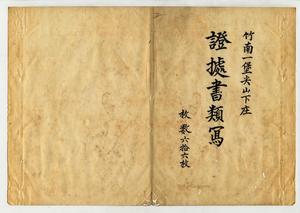 竹南一堡尖山下庄
證據書類寫
枚數六拾六枚